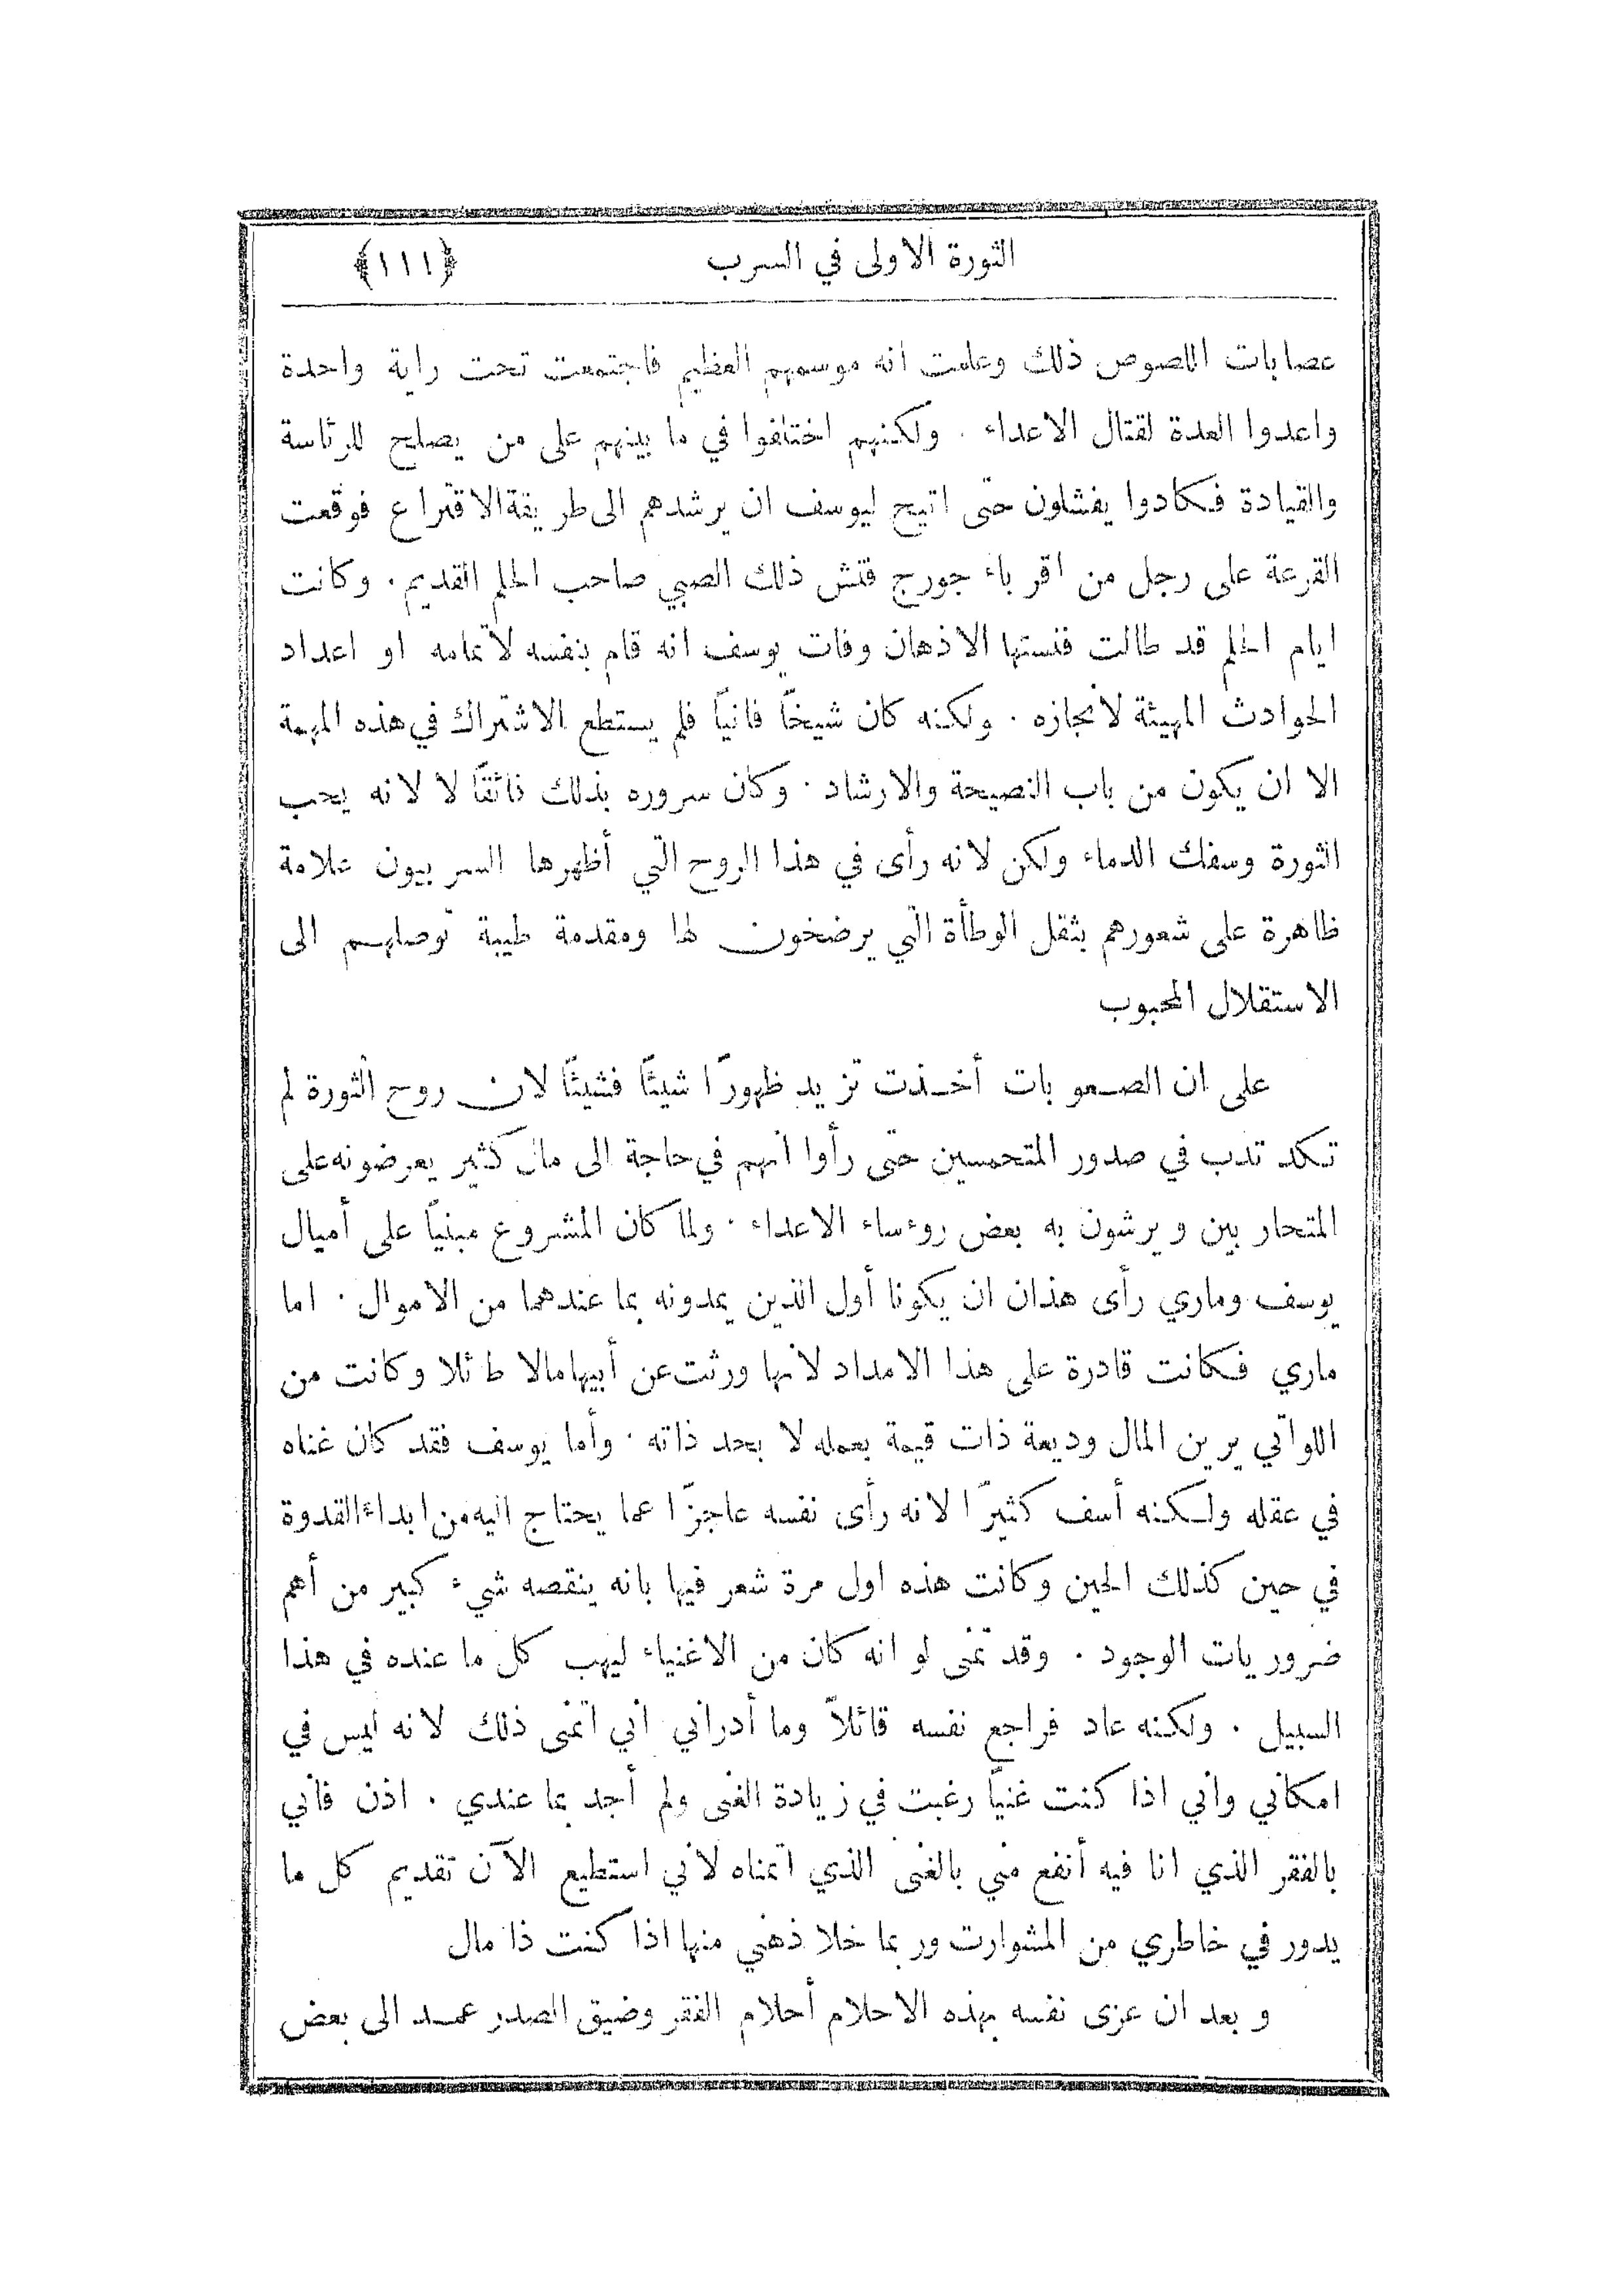 الثورة الاولى في السرب ﴿١١١﴾
عصابات اللصوص ذلك وعلمت انه موسمهم العظيم فاجتمعت تحت راية واحدة
واعدوا العدة لقتال الاعداء . ولكنهم اختلفوا في ما بينهم على من يصلح للرئاسة
والقيادة فكادوا يفشلون حتى اتيح ليوسف ان يرشدهم الى طريقة الاقتراع فوقعت
القرعة على رجل من اقرباء جورج قتش ذلك الصبي صاحب الحلم القديم . وكانت
ايام الحلم قد طالت فنستها الاذهان وفات يوسف انه قام بنفسه لاتمامه او اعداد
الحوادث المهيئة لانجازه . ولكنه كان شيخًا فانيًا فلم يستطع الاشتراك في هذه المهمة
الا ان يكون من باب النصيحة والارشاد . وكان سروره بذلك فائقًا لا لانه يحب
الثورة وسفك الدماء ولكن لانه رأى في هذا الروح التي أظهرها السربيون علامة
ظاهرة على شعورهم بثقل الوطأة التي يرضخون لها ومقدمة طيبة توصلهم الى
الاستقلال المحبوب
على ان الصعوبات أخذت تزيد ظهورًا شيئًا فشيئًا لان روح الثورة لم
تكد تدب في صدور المتحمسين حتى رأوا انهم في حاجة الى مال كثير يعرضونه على
المتحاربين ويرشون به بعض روءساء الاعداء . ولما كان المشروع مبنيًا على أميال
يوسف وماري رأى هذان ان يكونا أول الذين يمدونه بما عندهما من الاموال . اما
ماري فكانت قادرة على هذا الامداد لانها ورثت عن أبيها مالا طائلا وكانت من
اللواتي يرين المال وديعة ذات قيمة بعمله لا بحد ذاته . وأما يوسف فقد كان غناه
في عقله ولكنه أسف كثيرًا لانه رأى نفسه عاجزًا عما يحتاج اليه من ابداء القدوة
في حين كذلك الحين وكانت هذه اول مرة شعر فيها بانه ينقصه شيء كبير من أهم
ضروريات الوجود . وقد تمنى لو انه كان من الاغنياء ليهب كل ما عنده في هذا
السبيل . ولكنه عاد فراجع نفسه قائلاً وما أدراني اني اتمنى ذلك لانه ليس في
امكاني واني اذا كنت غنيًا رغبت في زيادة الغنى ولم أجد بما عندي . اذن فاني
بالفقر الذي انا فيه أنفع مني بالغنى الذي اتمناه لاني استطيع الآن تقديم كل ما
يدور في خاطري من المشوارت وربما خلا ذهني منها اذا كنت ذا مال
وبعد ان عزى نفسه بهذه الاحلام أحلام الفقر وضيق الصدر عمد الى بعض